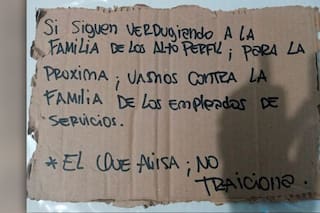 Si SigUEN VERDUgiANDO A LA
FAMILIA DE LOS ALTO PERFIL; PARA LA
PROXIMA; VAMOS CONTRA LA
FAMILIA DE LOS EMPLEADOS DE
SERVICIOS.
* EL QUE AViSA; NO
TRAICIONA.